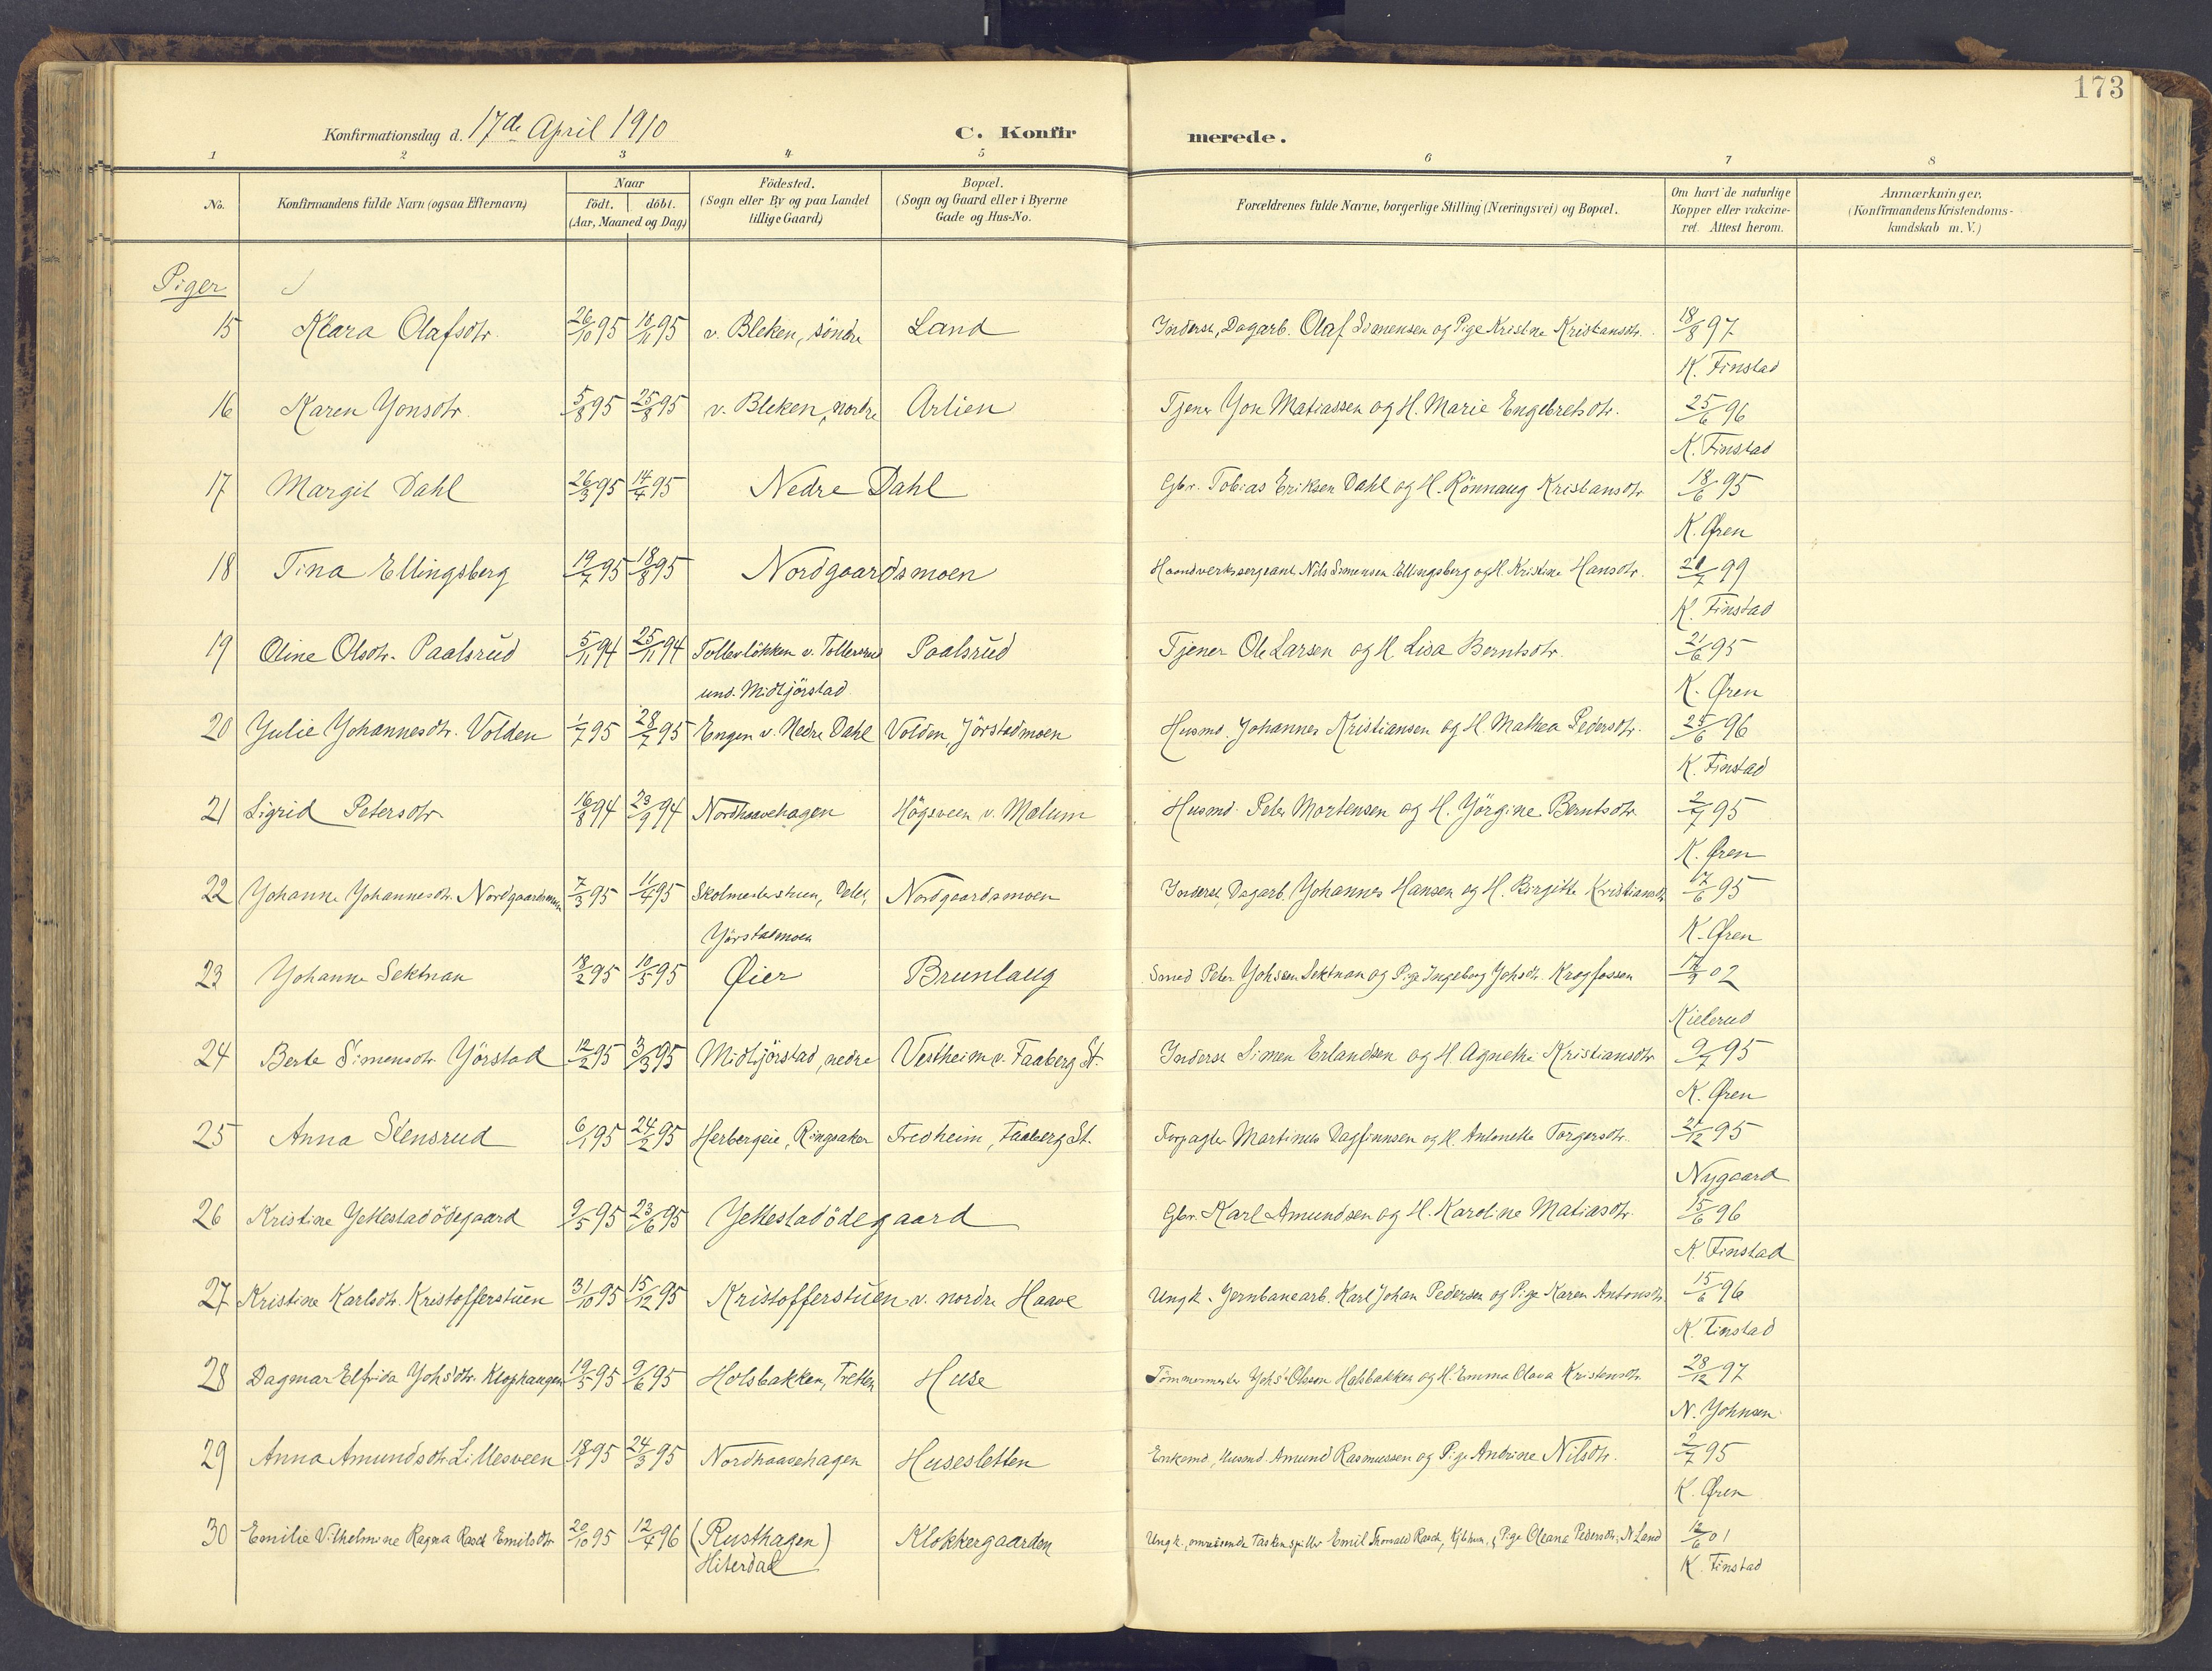 173
Konfirmationsdag d. 17de April 1910 C. Konfirmerede.
1 2 3 4 5 6 7 8
No. Konfirmandens fulde Navn (ogsaa Efternavn) Naar födt. döbt. (Aar, Maaned og Dag) Födested. (Sogn eller By og paa Landet tillige Gaard) Bopæl. (Sogn og Gaard eller i Byerne Gade og Hus-No. Forældrenes fulde Navne, borgerlige Stilling (Næringsvei) og Bopæl. Om havt de naturlige Kopper eller vakcineret. Attest herom. Anmærkninger. (Konfirmandens Kristendomskundskab m. V.)
Piger
15 Klara Olafsdtr. 26/10 95 18/11 95 v. Bleken, söndre Land Inderst, Dagarb. Olaf Simensen og Pige Kristine Kristiansdtr. 18/8 97
K. Finstad
16 Karen Yonsdtr. 5/8 95 25/8 95 v. Bleken, nordre Arlien Tjener Yon Matiassen og H. Marie Engebretsdtr. 25/6 96
K. Finstad
17 Margit Dahl 26/3 95 14/4 95 Nedre Dahl Gbr. Tobias Eriksen Dahl og H. Rönnaug Kristiansdtr. 18/6 95
K. Øren
18 Tina Ellingsberg 19/7 95 18/8 95 Nordgaardsmoen Haandverkssergeant Nils Simensen Ellingsberg og H. Kristine Hansdtr. 21/7 99
K. Finstad
19 Oline Olsdtr. Paalsrud 5/11 94 25/11 94 Tollevlökken v. Tollersrud Paalsrud Tjener Ole Larsen og H. Lisa Berntsdtr. 21/6 95
und. Midtjörstad K. Øren
20 Yulie Yohannesdtr. Volden 1/7 95 28/7 95 Engen v. Nedre Dahl Volden, Jörstadmoen Husmd. Yohannes Kristiansen og H. Mathea Pedersdtr. 25/6 96
K. Finstad
21 Sigrid Petersdtr. 16/8 94 23/9 94 Nordhaavehagen Högsveen v. Mælum Husmd. Peter Mortensen og H. Yörgine Berntsdtr. 2/7 95
K. Øren
22 Yohanne Yohannesdtr. Nordgaardsmoen 7/3 95 11/4 95 Skolmesterstuen, Nordgaardsmoen Inderst, Dagarb. Yohannes Hansen og H. Birgitte Kristiansdtr. 17/6 95
Yörstadmoen K. Øren
23 Yohanne Sektnan 18/2 95 10/5 95 Øier Brunlaug Smed Peter Yohnsen Sektnan og Pige Ingeborg Yohsdtr. Krogfossen 17/9 02
Kielerud
24 Berte Simensdtr. Yörstad 12/2 95 3/3 95 Midtjörstad, nedre Vestheim v. Faaberg St. Inderst Simen Erlandsen og H. Agnethe Kristiansdtr. 9/7 95
K. Øren
25 Anna Stensrud 6/1 95 24/2 95 Herbergeie, Ringsaker Fredheim, Faaberg St. Forpagter Martinus Dagfinnsen og H. Antonette Torgersdtr. 21/12 95
Nygaard
26 Kristine Yekkestadödegaard 9/5 95 23/6 95 Yekkestadödegaard Gbr. Karl Amundsen og H. Karoline Matiasdtr. 15/6 96
K. Finstad
27 Kristine Karlsdtr. Kristofferstuen 31/10 95 15/12 95 Kristofferstuen v. nordre Haave Ungk. Jernbanearb. Karl Johan Pedersen og Pige Karen Antonsdtr. 15/6 96
K. Finstad
28 Dagmar Elfrida Yohsdtr. Klophaugen 19/5 95 9/6 95 Holsbakken, Tretten Huse Tömmermester Yohs Olsson Holsbakken og H. Emma Olava Kristensdtr. 28/12 97
N. Yohnsen
29 Anna Amundsdtr. Lillesveen 18/1 95 24/3 95 Nordhaavehagen Husesletten Enkemd., Husmd. Amund Rasmussen og Pige Andrine Nilsdtr. 2/7 95
K. Øren
30 Emilie Vilhelmine Ragna Rasch Emilsdtr. 20/10 95 12/4 96 (Rusthagen) Klokkergaarden Ungk., omreisende Taskenspiller Emil Thorvald Rasch, Kjbhvn. & Pige Oleana Pedersdtr., N. Land 12/6 01
Hiterdal K. Finstad